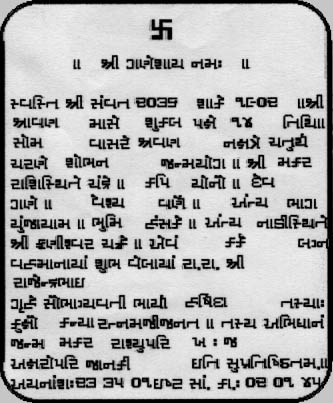 卐
॥ શ્રી ગણેશાય નમઃ ॥
સ્વસ્તિ શ્રી સંવત ૨૦૩૬ શાકે ૧૯૦૨ ॥શ્રી
શ્રાવણ માસે શુકલ પક્ષે ૧૪ તિથિ॥
સોમ વાસરે શ્રવણ નક્ષત્રે ચતુર્થ
ચરણે શોભન જન્મયોગ॥ શ્રી મકર
રાશિસ્થિતે ચંદ્રે ॥ કપિ યોનૌ ॥ દેવ
ગણે ॥ વૈશ્ય વર્ણે ॥ અંત્ય ભાગ
યુંજાયામ ॥ ભૂમિ હંસકે ॥ અંત્ય નાડીસ્થિતે
શ્રી ફણીશ્વર ચક્રે ॥ એવં કર્ક લગ્ન
વહમાનાયાં શુભ વેલાયાં રા.રા. શ્રી
રાજેન્દ્રભાઇ
ગૃહે સૌભાગ્યવતી ભાર્યા હર્ષિદા તસ્યાઃ
કુક્ષૌ કન્યારત્નમજીજનત ॥ તસ્ય અભિધાનં
જન્મ મકર રાશ્યુપરિ ખ : જ
અક્ષરોપરિ જાનકી ઇતિ સુપ્રતિષ્ઠિતમ્.॥
અયનાંશઃ૨૩ ૩૫ ૦૧ઇષ્ટ સાં. ક઼ા.: ૦૨ ૦૧ ૪૫